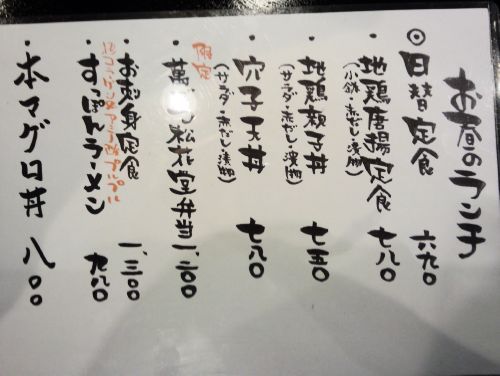 お昼のランチ
◎日替定食 六九〇
・地鶏唐揚定食 七八〇
(小鉢・赤だし・漬物)
・地鶏親子丼 七五〇
(サラダ・赤だし・漬物)
・穴子天丼 七八〇
(サラダ・赤だし・漬物)
限定
・萬 松花堂弁当 一、二〇〇
・お刺身定食 一、三〇〇
コラーゲン プルプル
・すっぽんラーメン 九八〇
・本マグロ丼 八〇〇